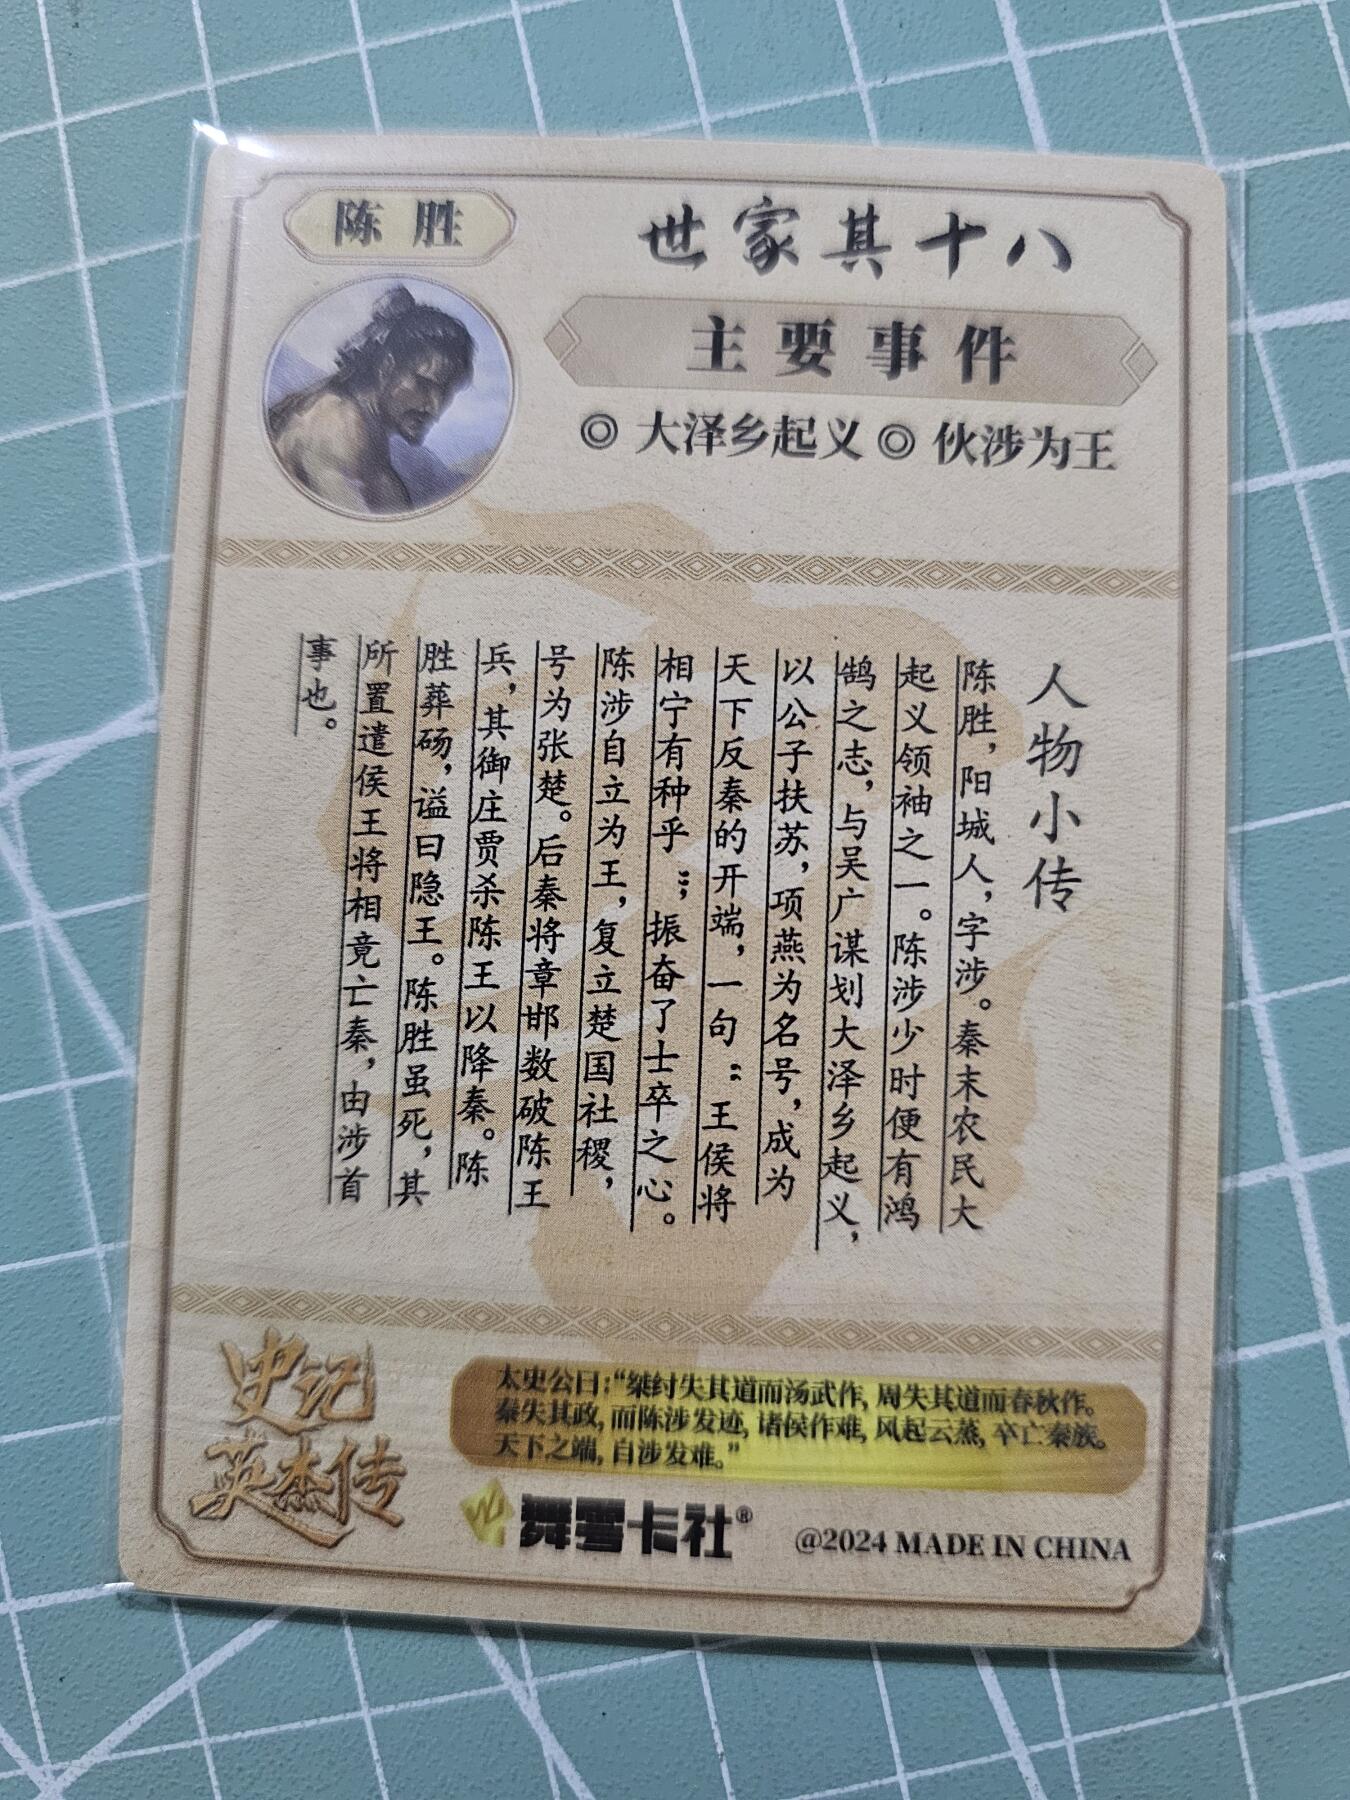 陈胜
世家其十八
主要事件
◎ 大泽乡起义 ◎ 伙涉为王
人物小传
陈胜，阳城人，字涉。秦末农民大
起义领袖之一。陈涉少时便有鸿
鹄之志，与吴广谋划大泽乡起义，
以公子扶苏，项燕为名号，成为
天下反秦的开端，一句“王侯将
相宁有种乎”，振奋了士卒之心。
陈涉自立为王，复立楚国社稷，
号为张楚。后秦将章邯数破陈王
兵，其御庄贾杀陈王以降秦。陈
胜葬砀，谥曰隐王。陈胜虽死，其
所置遣侯王将相竟亡秦，由涉首
事也。
史记
英杰传
太史公曰：“桀纣失其道而汤武作，周失其道而春秋作。
秦失其政，而陈涉发迹，诸侯作难，风起云蒸，卒亡秦族。
天下之端，自涉发难。”
舞雩卡社®
@2024 MADE IN CHINA